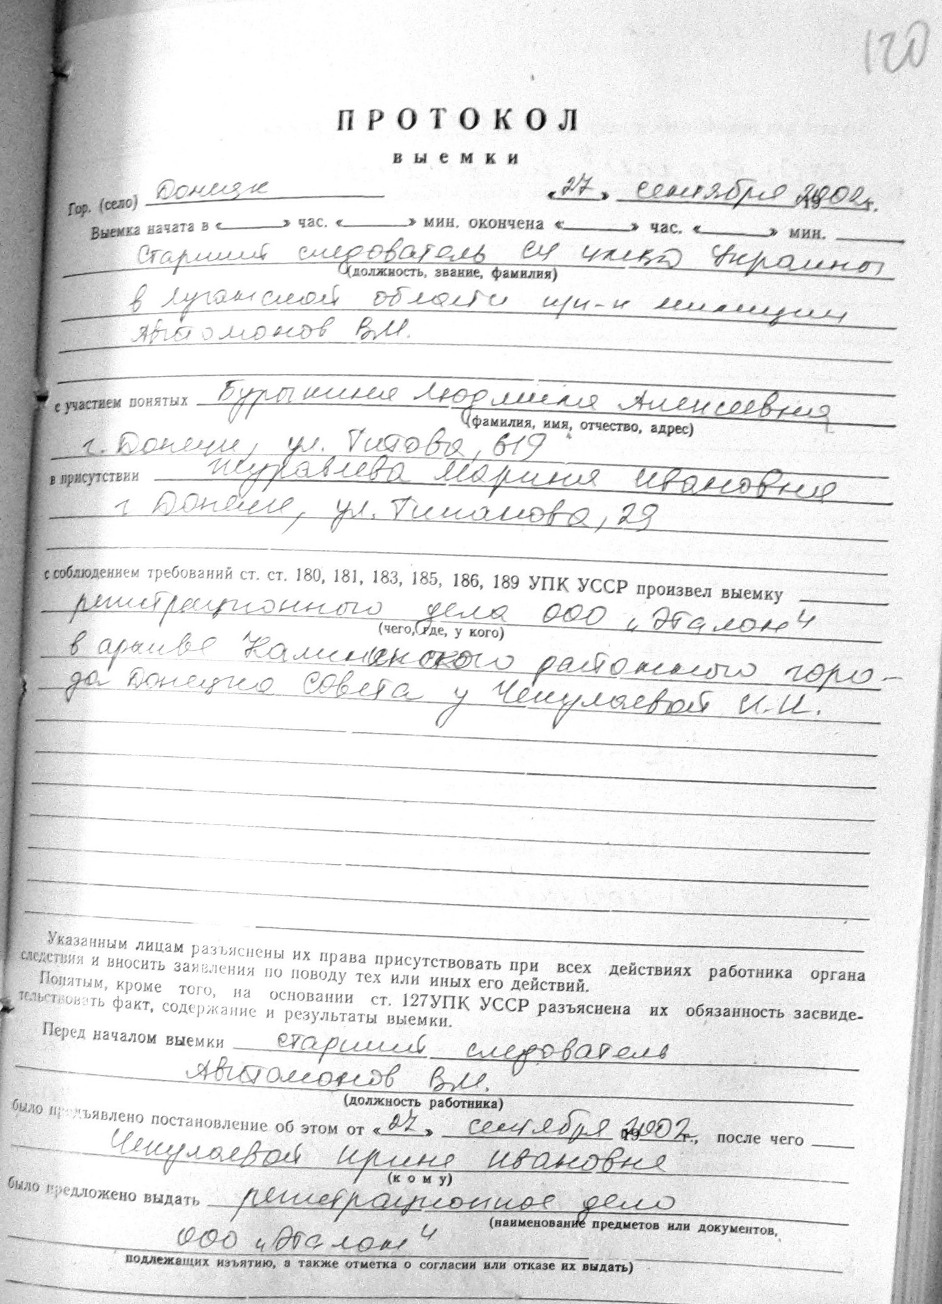 120
ПРОТОКОЛ
выемки
Гор. (село) Донецк «27» сентября 2002г.
Выемка начата в « » час. « » мин. окончена « » час. « » мин.
Старший следователь СЧ Украины
(должность, звание, фамилия)
в Луганской области п/п-к милиции
Автомонов В.М.
с участием понятых Бурыкина Людмила Алексеевна
(фамилия, имя, отчество, адрес)
г. Донецк, ул. Титова, 619
в присутствии Журавлева Марина Ивановна
г Донецк, ул. 29
с соблюдением требований ст. ст. 180, 181, 183, 185, 186, 189 УПК УССР произвел выемку
регистрационного дела ООО „Эталон"
(чего, где, у кого)
в архиве Калининского районного горо-
да Донецка Совета у Чекулаевой И.И.
Указанным лицам разъяснены их права присутствовать при всех действиях работника органа
следствия и вносить заявления по поводу тех или иных его действий.
Понятым, кроме того, на основании ст. 127УПК УССР разъяснена их обязанность засвиде-
тельствовать факт, содержание и результаты выемки.
Перед началом выемки старший следователь
Автомонов В.М.
(должность работника)
было предъявлено постановление об этом от «27» сентября 2002г., после чего
Чекулаевой Ирине Ивановне
(кому)
было предложено выдать регистрационное дело
(наименование предметов или документов,
ООО „Эталон"
подлежащих изъятию, а также отметка о согласии или отказе их выдать)